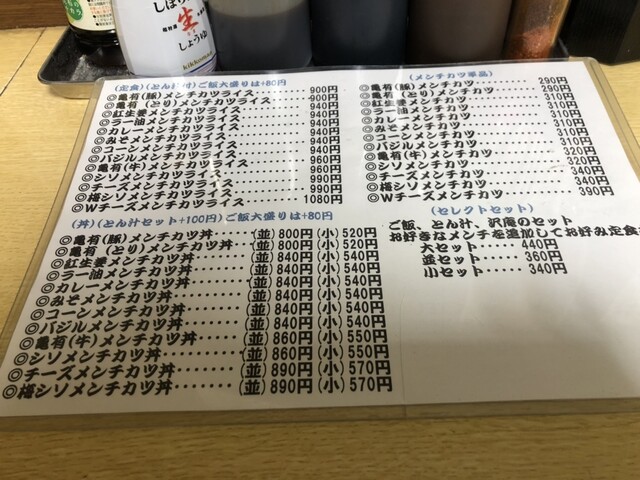 しぼり
生
しょうゆ
kikkoman
(定食)(とん汁付)ご飯大盛りは+80円
◎亀有(豚)メンチカツライス・・・・900円
◎亀有(とり)メンチカツライス・・・900円
◎紅生姜メンチカツライス・・・・・940円
◎ラー油メンチカツライス・・・・・940円
◎カレーメンチカツライス・・・・・940円
◎みそメンチカツライス・・・・・・940円
◎コーンメンチカツライス・・・・・940円
◎バジルメンチカツライス・・・・・940円
◎亀有(牛)メンチカツライス・・・・960円
◎シソメンチカツライス・・・・・・960円
◎チーズメンチカツライス・・・・・990円
◎梅シソメンチカツライス・・・・・990円
◎Wチーズメンチカツライス・・・・1080円
(丼)(とん汁セット+100円)ご飯大盛りは+80円
◎亀有(豚)メンチカツ丼・・・・・(並)800円(小)520円
◎亀有(とり)メンチカツ丼・・・・(並)800円(小)520円
◎紅生姜メンチカツ丼・・・・・・(並)840円(小)540円
◎ラー油メンチカツ丼・・・・・・(並)840円(小)540円
◎カレーメンチカツ丼・・・・・・(並)840円(小)540円
◎みそメンチカツ丼・・・・・・・(並)840円(小)540円
◎コーンメンチカツ丼・・・・・・(並)840円(小)540円
◎バジルメンチカツ丼・・・・・・(並)840円(小)540円
◎亀有(牛)メンチカツ丼・・・・・(並)860円(小)550円
◎シソメンチカツ丼・・・・・・・(並)860円(小)550円
◎チーズメンチカツ丼・・・・・・(並)890円(小)570円
◎梅シソメンチカツ丼・・・・・・(並)890円(小)570円
(メンチカツ単品)
◎亀有(豚)メンチカツ・・・・・290円
◎亀有(とり)メンチカツ・・・・290円
◎紅生姜メンチカツ・・・・・・310円
◎ラー油メンチカツ・・・・・・310円
◎カレーメンチカツ・・・・・・310円
◎みそメンチカツ・・・・・・・310円
◎コーンメンチカツ・・・・・・310円
◎バジルメンチカツ・・・・・・310円
◎亀有(牛)メンチカツ・・・・・320円
◎シソメンチカツ・・・・・・・320円
◎チーズメンチカツ・・・・・・340円
◎梅シソメンチカツ・・・・・・340円
◎Wチーズメンチカツ・・・・・390円
(セレクトセット)
ご飯、とん汁、沢庵のセット
お好きなメンチを追加してお好み定食
大セット・・・・・440円
並セット・・・・・360円
小セット・・・・・340円